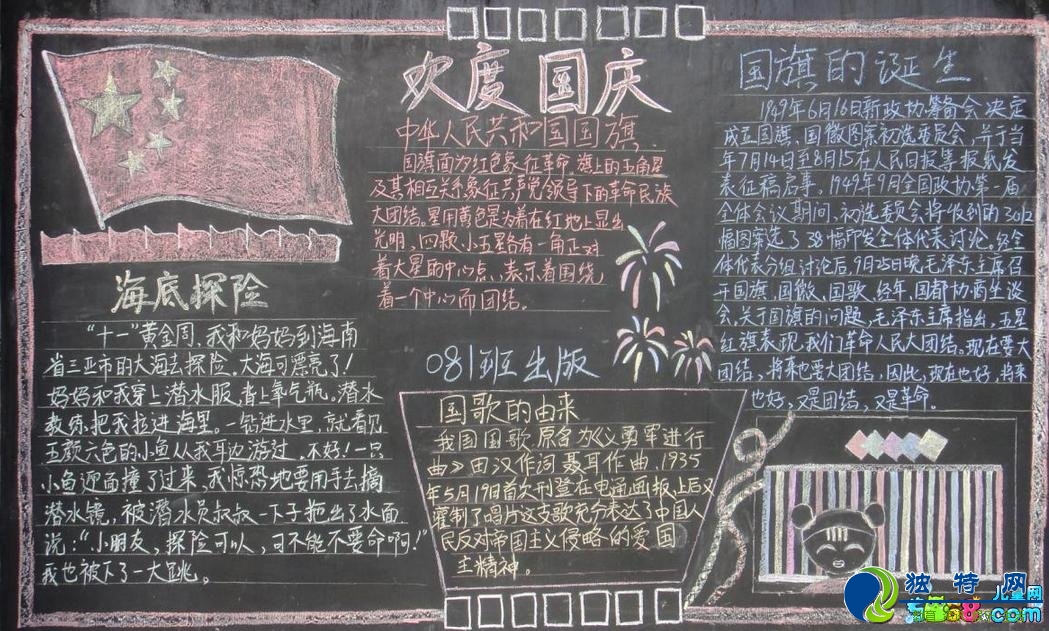 欢度国庆
中华人民共和国国旗
国旗面为红色象征革命,旗上的五角星
及其相互关系象征共产党领导下的革命民族
大团结。星用黄色是为着在红地上显出
光明,四颗小五星各有一角正对
着大星的中心点、表示着围绕
着一个中心而团结。
海底探险
“十一”黄金周,我和妈妈到海南
省三亚市的大海去探险。大海可漂亮了!
妈妈和我穿上潜水服,背上氧气瓶。潜水
教练把我拉进海里。一钻进水里,就看见
五颜六色的小鱼从我耳边游过,不好!一只
小鱼迎面撞了过来,我惊恐地要用手去摘
潜水镜,被潜水员叔叔一下子拖出了水面
说:“小朋友,探险可以,可不能不要命啊!”
我也被下了一大跳。
081班出版
国歌的由来
我国国歌原名为《义勇军进行
曲》田汉作词聂耳作曲,1935
年5月19日首次刊登在电通画报上后又
灌制了唱片这支歌充分表达了中国人
民反对帝国主义侵略的爱国
主精神。
国旗的诞生
1949年6月16日新政协筹备会决定
成立国旗、国徽图案初选委员会,并于当
年7月14日至8月15在人民日报等报纸发
表征稿启事。1949年9月全国政协第一届
全体会议期间,初选委员会将收到的3012
幅图案选了38幅印发全体代表讨论。经全
体代表分组讨论后,9月25日晚毛泽东主席召
开国旗、国徽、国歌、经年、国都协商座谈
会,关于国旗的问题,毛泽东主席指出,五星
红旗表现我们革命人民大团结。现在要大
团结,将来也要大团结,因此,现在也好,将来
也好,又是团结,又是革命。
独特网
儿童网
.com